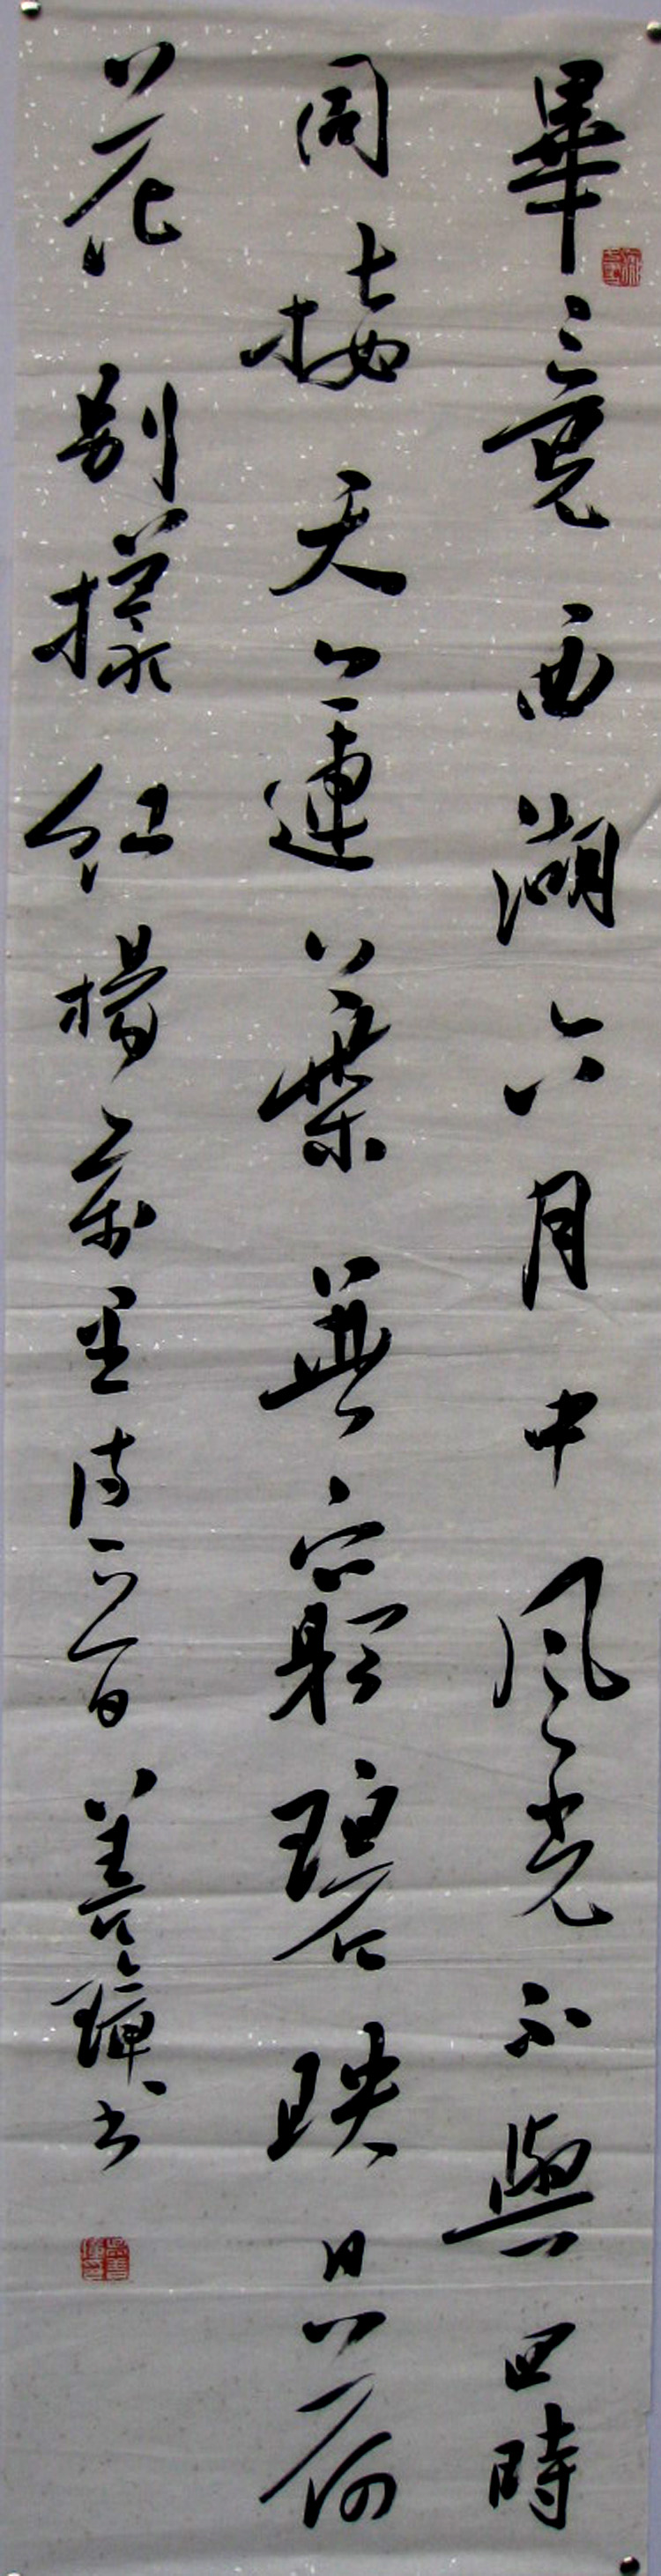 畢竟西湖六月中風光不與四時
同接天蓮葉無窮碧映日荷
花別樣紅楊萬里詩一首善璋書